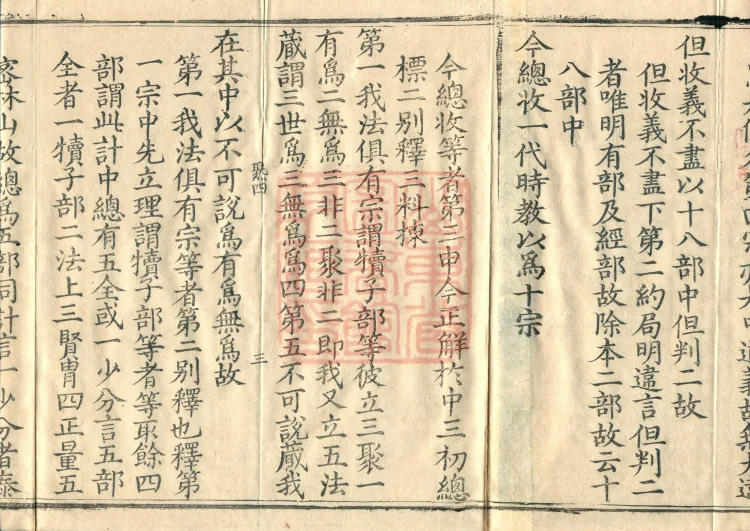 但收義不盡以十八部中但判二故
但收義不盡下第二約局明違言但判二
者唯明有部及經部故除本二部故云十
八部中
今總收一代時教以爲十宗
今總收等者第三申今正解於中三初總
標二别釋三料揀
第一我法俱有宗謂犢子部等彼立三聚一
有爲二無爲三非二聚非二即我又立五法
藏謂三世爲三無爲爲四第五不可說藏我
在其中以不可說爲有爲無爲故
聚四
三
第一我法俱有宗等者第二别釋也釋第
一宗中先立理謂犢子部等者等取餘四
部謂此計中總有五全或一少分言五部
全者一犢子部二法上三賢胄四正量五
密林山故總爲五部同計言一少分者泰